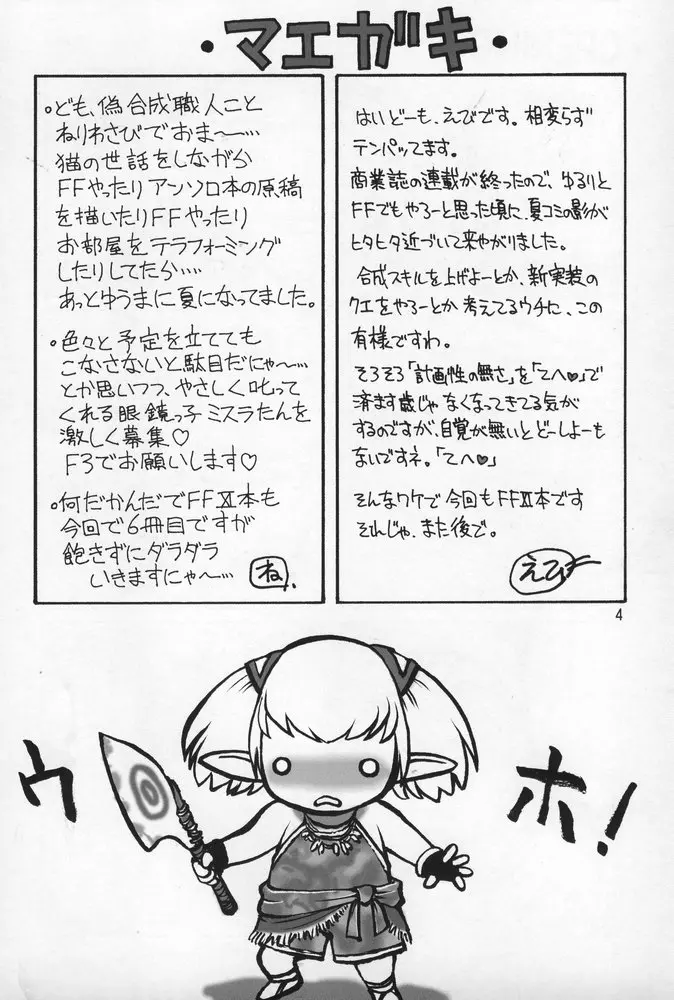 ・マエガキ・
はいどーも、えびです。相変らず
テンパッてます。
商業誌の連載が終ったので、ゆるりと
FFでもやろーと思った頃に、夏コミの影が
ヒタヒタ近づいて来やがりました。
合成スキルを上げよーとか、新実装の
クエをやろーとか考えてるウチに、この
有様ですわ。
そろそろ「計画性の無さ」を「てへ♥」で
済ます歳じゃなくなってきてる気が
するのですが、自覚が無いとどーしよーも
ないですネ。「てへ♥」
そんなワケで今回もFFⅪ本です
それじゃ、また後で。
えび
。ども、偽合成職人こと
ねりわさびでおま〜…
猫の世話をしながら
FFやったりアンソロ本の原稿
を描いたりFFやったり
お部屋をテラフォーミング
したりしてたら….
あっとゆうまに夏になってました。
。色々と予定を立てても
こなさないと駄目だにゃ〜…
とか思いつつ、やさしく叱って
くれる眼鏡っ子ミスラたんを
激しく募集♡
F3でお願いします♡
。何だかんだでFFⅪ本も
今回で6冊目ですが
飽きずにダラダラ
いきますにゃ〜…
ね.
4
ウホ!